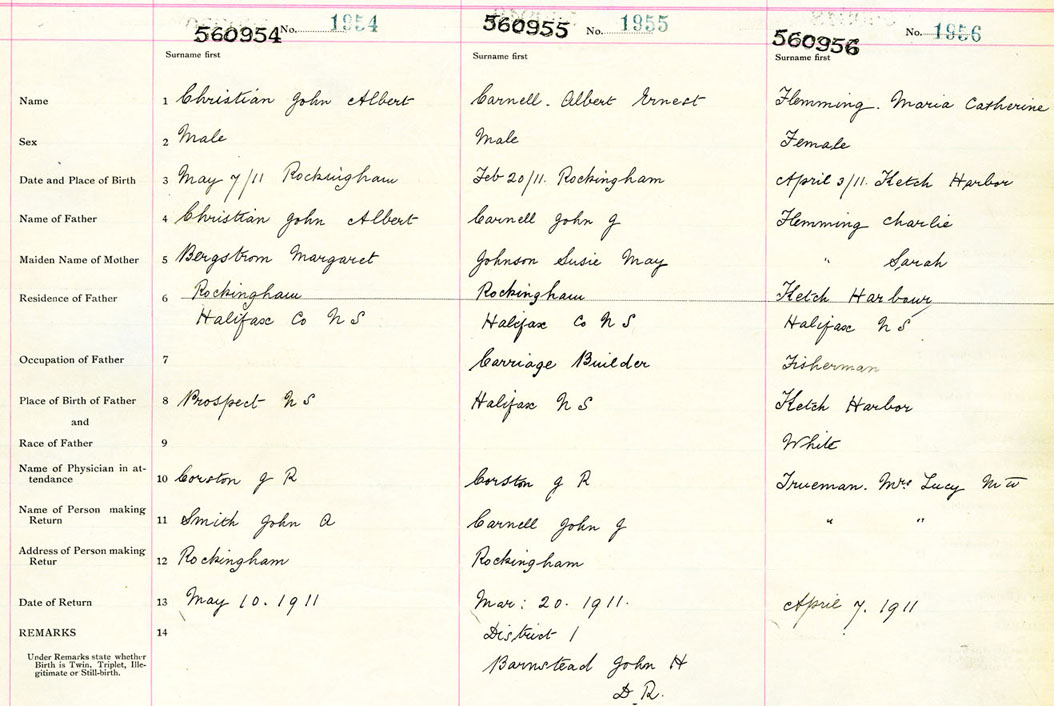 560954 No. 1954 560955 No. 1955 560956 No. 1956
Surname first Surname first Surname first
Name 1 Christian John Albert Carnell. Albert Ernest Flemming. Maria Catherine
Sex 2 Male Male Female
Date and Place of Birth 3 May 7/11 Rockingham Feb 20/11. Rockingham April 3/11. Ketch Harbor
Name of Father 4 Christian John Albert Carnell John J Flemming Charlie
Maiden Name of Mother 5 Bergstrom Margaret Johnson Susie May " Sarah
Residence of Father 6 Rockingham Rockingham Ketch Harbour
Halifax Co N S Halifax Co N S Halifax N S
Occupation of Father 7 Carriage Builder Fisherman
Place of Birth of Father 8 Prospect N S Halifax N S Ketch Harbor
and
Race of Father 9 White
Name of Physician in at-
tendance 10 Corston J R Corston J R Trueman. Mrs Lucy M W
Name of Person making
Return 11 Smith John A Carnell John J " "
Address of Person making
Retur 12 Rockingham Rockingham
Date of Return 13 May 10. 1911 Mar: 20. 1911. April 7. 1911
REMARKS 14 District 1
Under Remarks state whether
Birth is Twin, Triplet, Ille-
gitimate or Still-birth.
Barnstead John H
D. R.